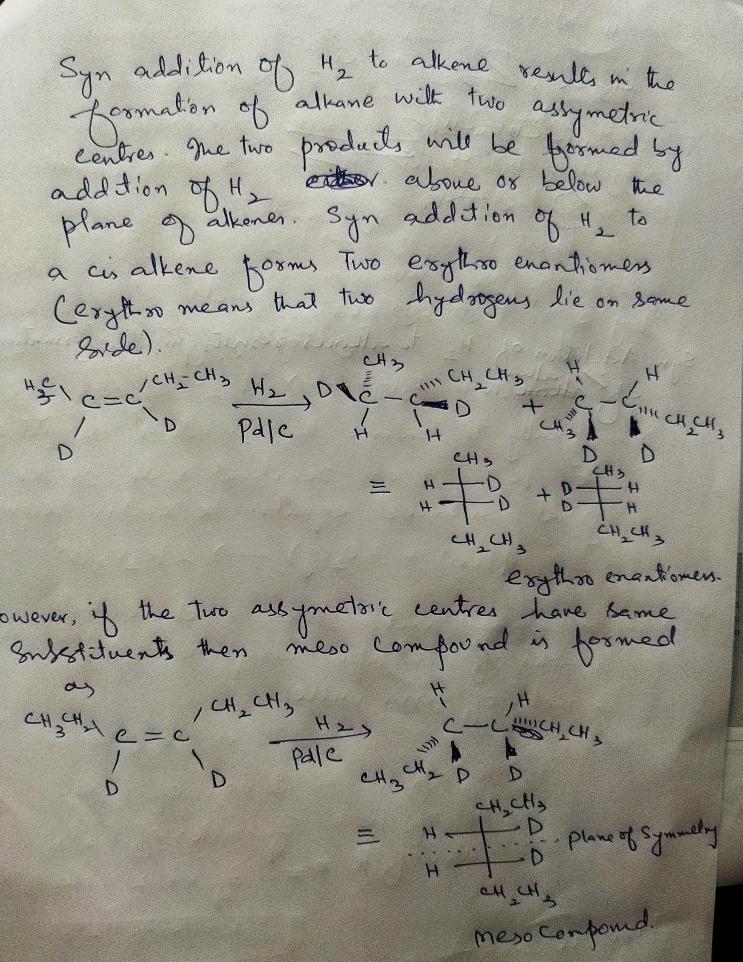 Syn addition of H2 to alkene results in the
formation of alkane with two assymetric
centres. The two products will be formed by
addition of H2 above or below the
plane of alkenes. Syn addition of H2 to
a cis alkene forms Two erythro enantiomers
(erythro means that two hydrogens lie on same
side).
H3C CH2-CH3 H2 CH3 CH2CH3 H H
C=C D C-C D + C-C
D D Pd/C H H CH3 D D CH2CH3
≡ CH3 + CH3
H D D H
H D D H
CH2CH3 CH2CH3
erythro enantiomers.
owever, if the two assymetric centres have same
Substituents then meso compound is formed
as
CH3CH2 CH2CH3 H2 H H
C=C C-C CH2CH3
D D Pd/C CH3CH2 D D
≡ CH2CH3
H D
plane of Symmetry
H D
CH2CH3
meso compound.